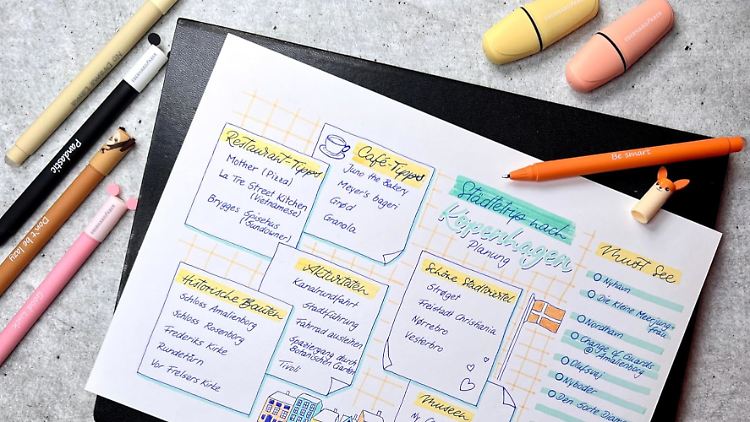 Restaurant-Tipps
Mother (Pizza)
La Tre Street Kitchen
(Vietnamese)
Brygges Spisehus
(Sundowner)
Café-Tipps
June the Bakery
Meyer's bageri
Grød
Granola
Städtetrip nach
Kopenhagen
Planung
Must See
Nyhavn
Die Kleine Meerjung-
frau
Nordhavn
Change of Guards
@Amalienborg
Olufsvej
Nyboder
Den Sorte Diamant
Historische Bauten
Schloss Amalienborg
Schloss Rosenborg
Frederiks Kirke
Rundetårn
Vor Frelsers Kirke
Aktivitäten
Kanalrundfahrt
Stadtführung
Fahrrad ausleihen
Spaziergang durch
Botanischen Garten
Tivoli
Schöne Stadtviertel
Strøget
Freistadt Christiania
Nørrebro
Vesterbro
Museen
Ny
Pandastic
Don't be lazy
Be smart